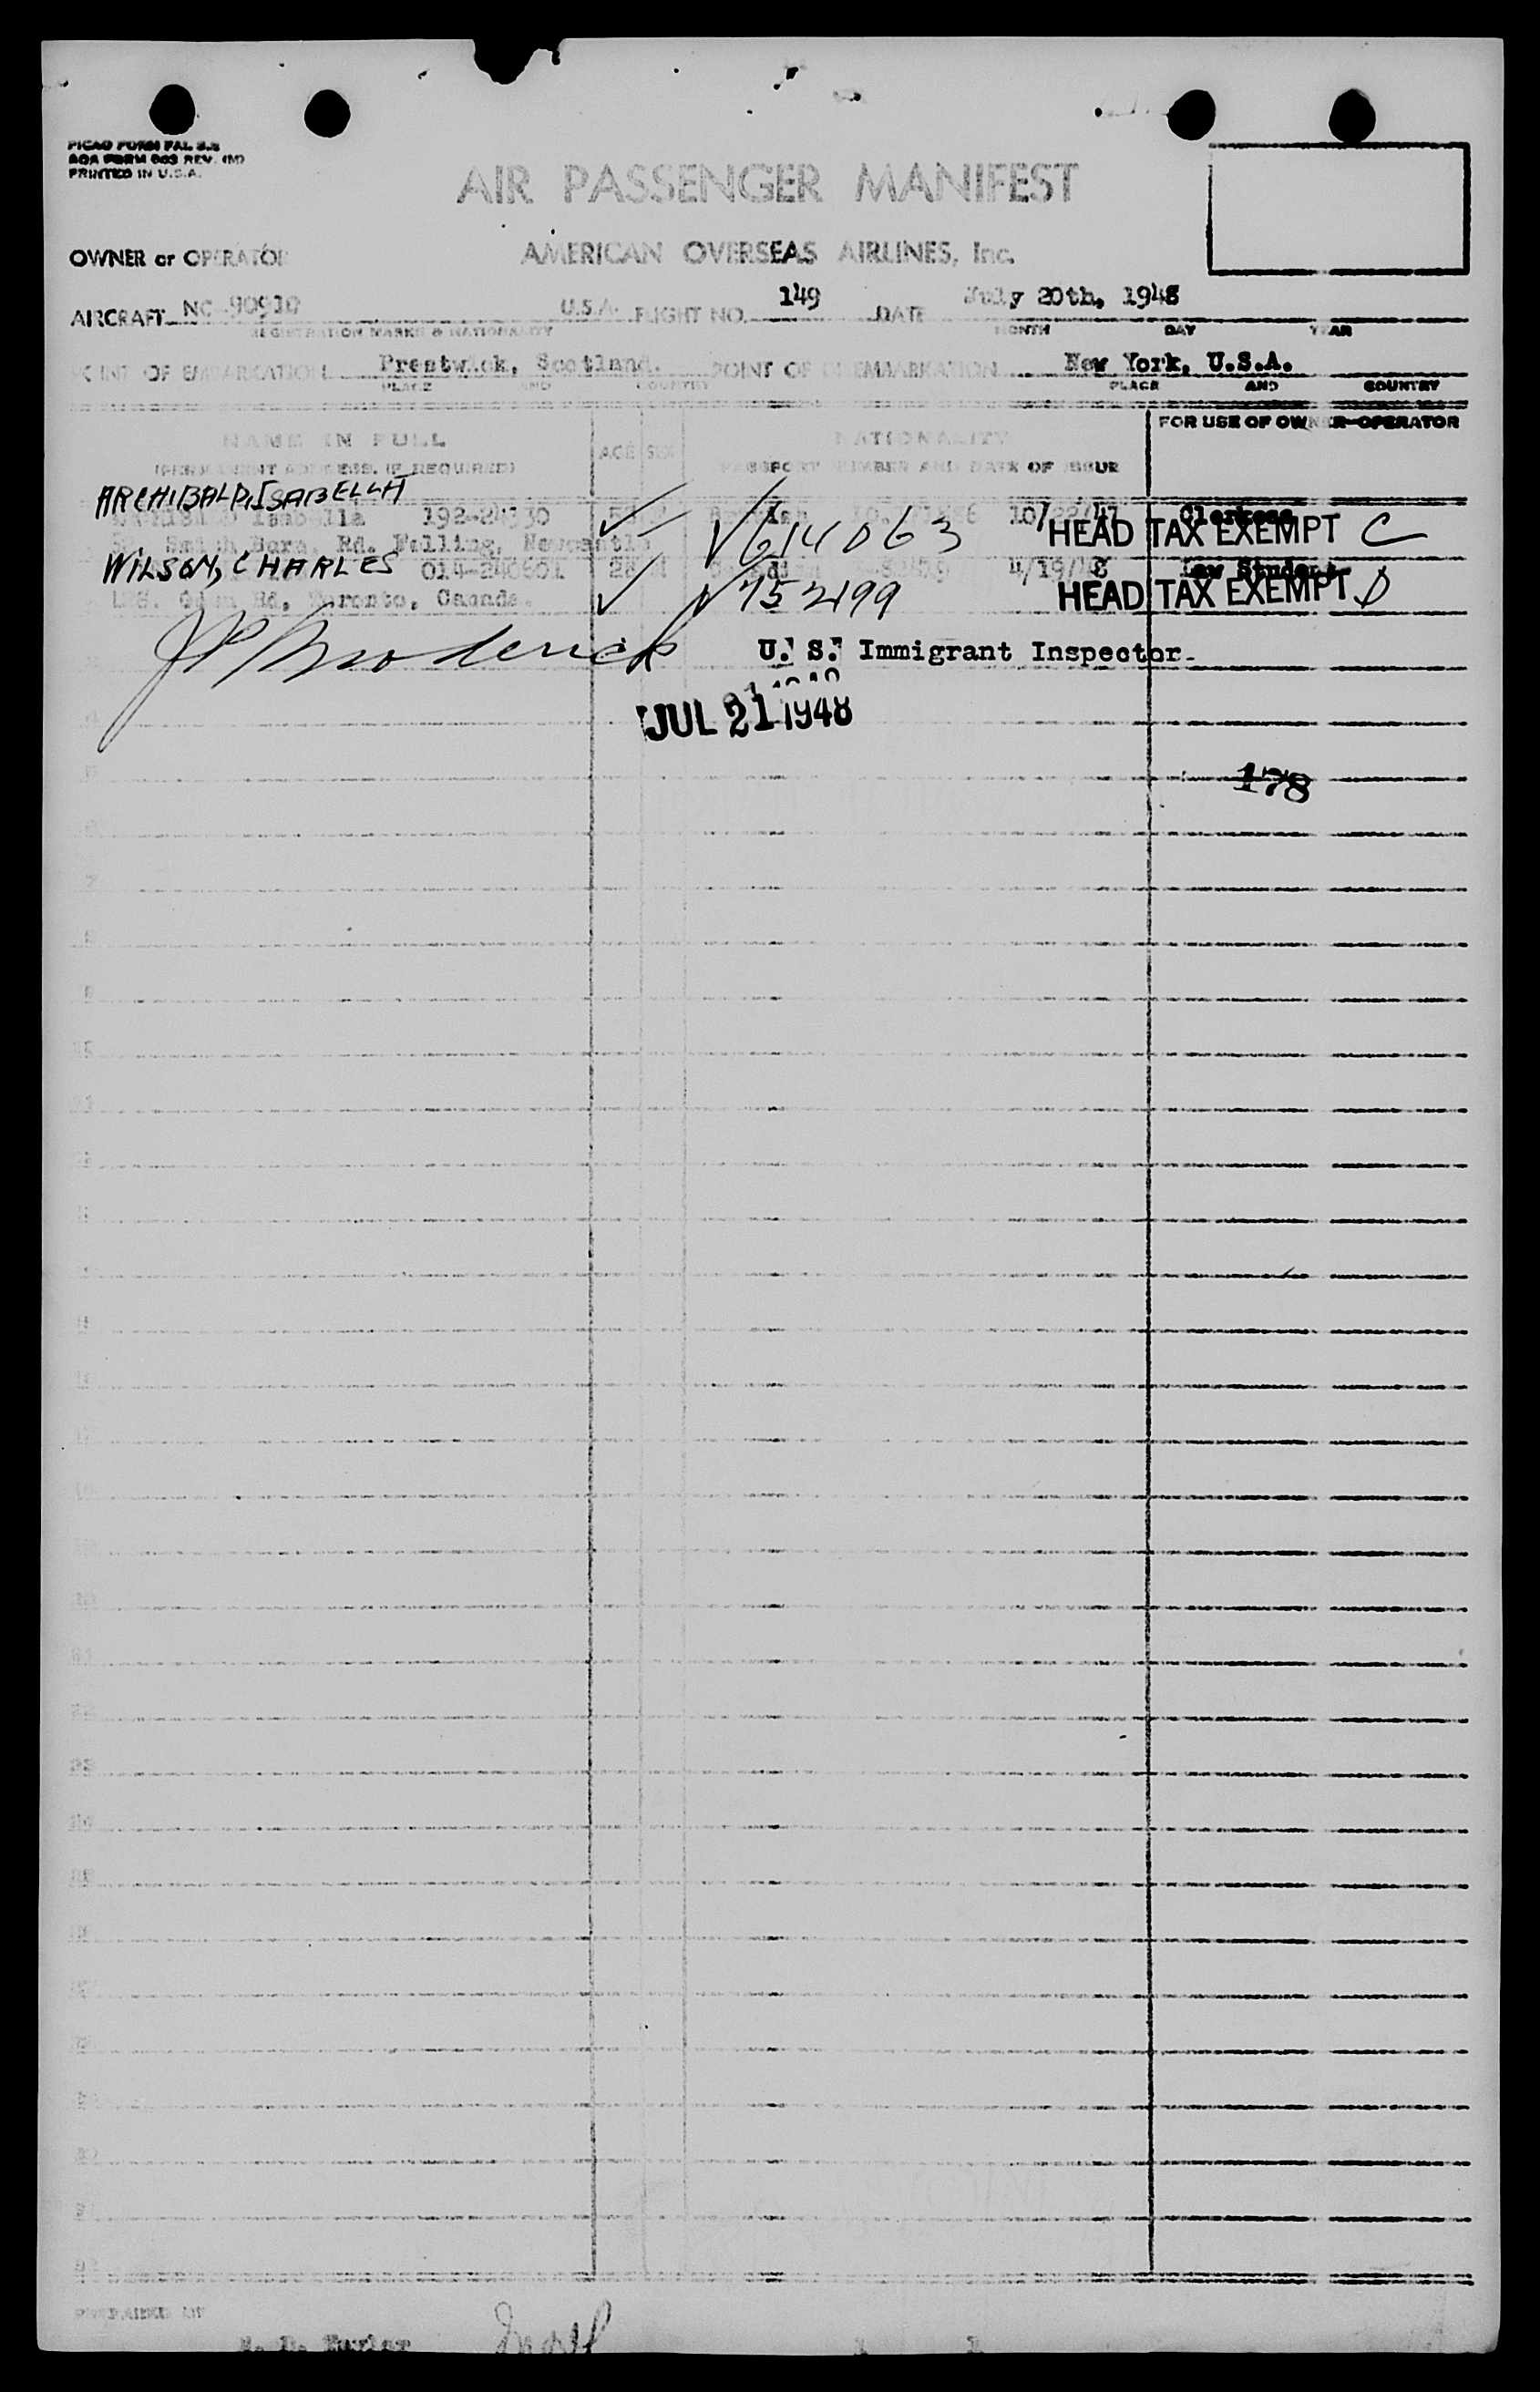 PICAO FORM FAL
AOA FORM 603 REV. (M)
PRINTED IN U.S.A.
AIR PASSENGER MANIFEST
OWNER or OPERATOR AMERICAN OVERSEAS AIRLINES, Inc.
AIRCRAFT NC U.S.A. FLIGHT NO. 149 DATE July 20th, 1948
REGISTRATION MARKS & NATIONALITY MONTH DAY YEAR
POINT OF EMBARKATION Prestwick, Scotland. POINT OF DISEMBARKATION New York, U.S.A.
PLACE AND COUNTRY PLACE AND COUNTRY
NAME IN FULL AGE SEX NATIONALITY FOR USE OF OWNER-OPERATOR
(PERMANENT ADDRESS, IF REQUIRED) PASSPORT NUMBER AND DATE OF ISSUE
ARCHIBALD, ISABELLA
Isabella 192-24330 10/22/47
Rd. Felling, Newcastle V614063 HEAD TAX EXEMPT C
WILSON, CHARLES 28 4/19/48 Law Student
Rd, Toronto, Canada. V752199 HEAD TAX EXEMPT D
J P Broderick U. S. Immigrant Inspector
JUL 21 1948
178
PREPARED BY